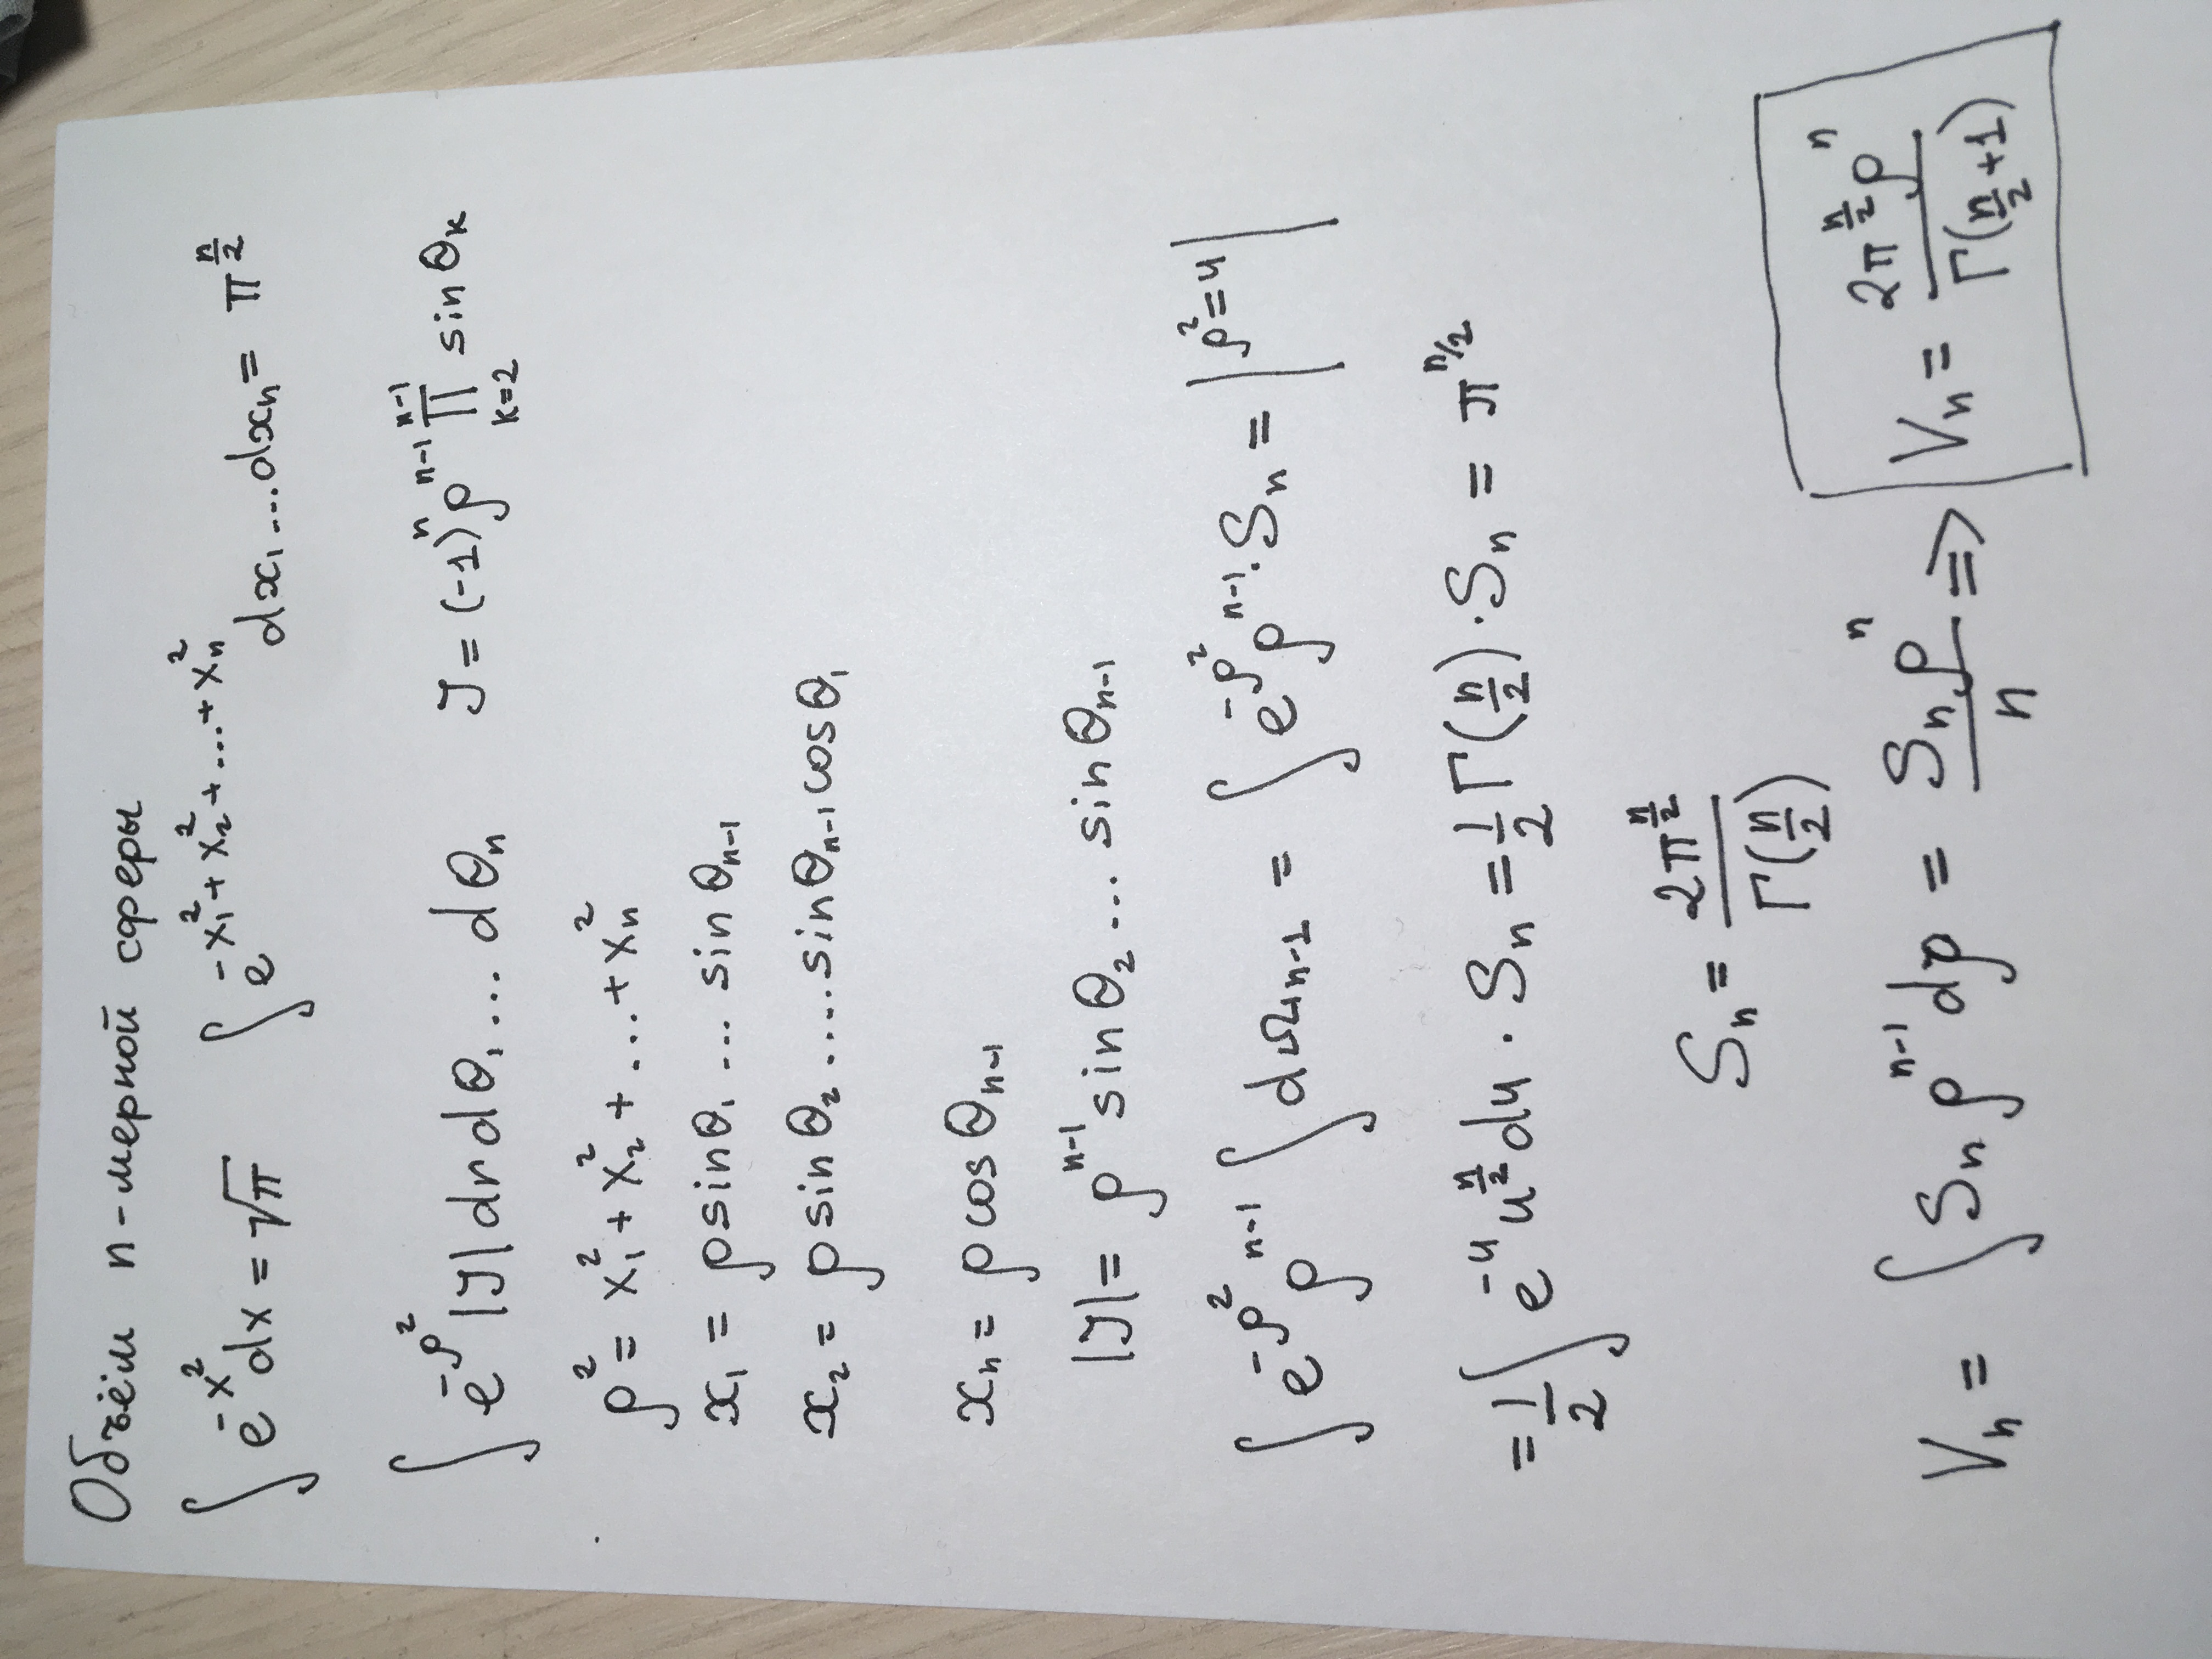 Объём n-мерной сферы
∫ e^{-x^2} dx = √π    ∫ e^{-x_1^2 + x_2^2 + ... + x_n^2} dx_1 ... dx_n = π^{n/2}
∫ e^{-ρ^2} |J| dr dθ_1 ... dθ_n    J = (-1)^n ρ^{n-1} ∏_{k=2}^{n-1} sin θ_k
ρ^2 = x_1^2 + x_2^2 + ... + x_n^2
x_1 = ρ sin θ_1 ... sin θ_{n-1}
x_2 = ρ sin θ_2 .... sin θ_{n-1} cos θ_1
x_n = ρ cos θ_{n-1}
|J| = ρ^{n-1} sin θ_2 ... sin θ_{n-1}
∫ e^{-ρ^2} ρ^{n-1} ∫ dΩ_{n-1} = ∫ e^{-ρ^2} ρ^{n-1} · S_n = | ρ^2 = u |
= 1/2 ∫ e^{-u} u^{n/2} du · S_n = 1/2 Γ(n/2) · S_n = π^{n/2}
S_n = 2π^{n/2} / Γ(n/2)
V_n = ∫ S_n ρ^{n-1} dρ = S_n ρ^n / n ⇒ V_n = 2π^{n/2} ρ^n / Γ(n/2 + 1)